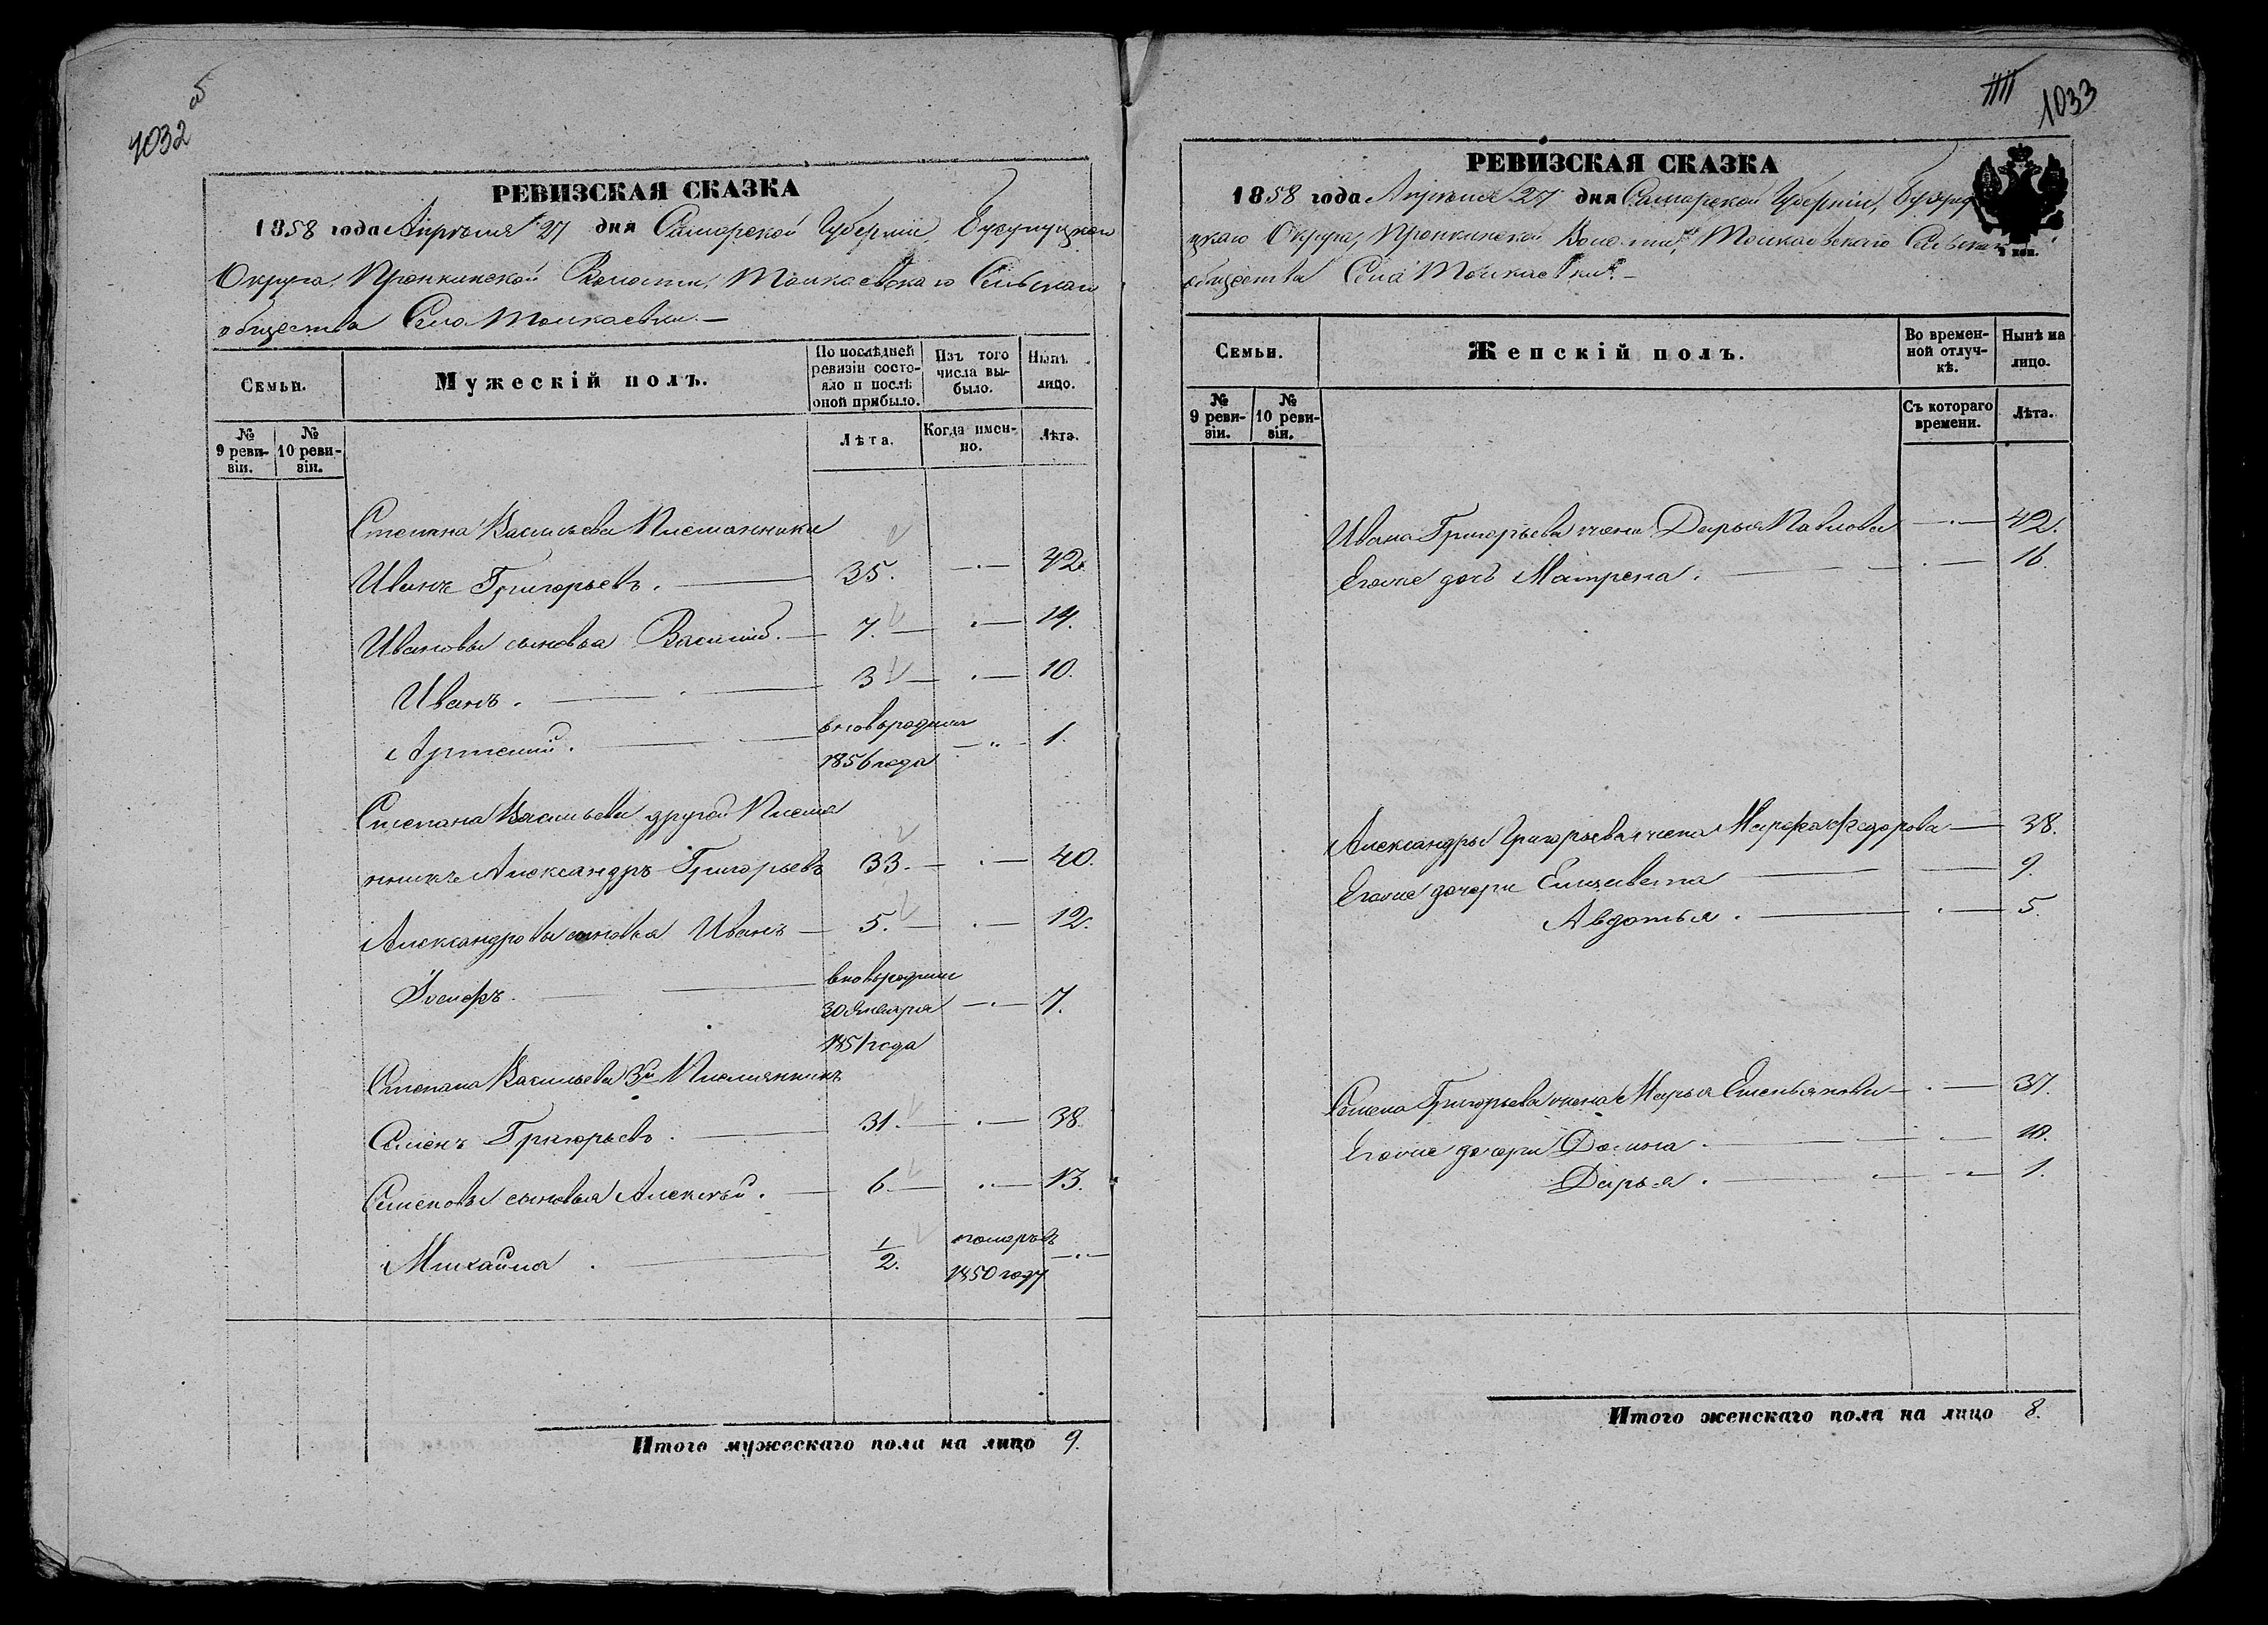 1032 об
РЕВИЗСКАЯ СКАЗКА
1858 года Апрѣля 27 дня Самарской Губерніи, Бузулуцкаго
Округа, Пронкинской Волости, Толкаевскаго Сельскаго
общества Села Толкаевки.—
Семьи.
Мужескій полъ.
По послѣдней ревизіи состояло и послѣ оной прибыло.
Изъ того числа выбыло.
Нынѣ лицо.
№ 9 ревизіи.
№ 10 ревизіи.
Лѣта.
Когда именно.
Лѣта.
Степана Васильева Племянники
Иванъ Григорьевъ. 35. 42.
Ивановы сыновья Василій. 7. 14.
Иванъ. 3 10.
Артемій. вновьродился 1.
1856 года
Степана Васильева другой Племя
нникъ Александръ Григорьевъ 33. 40.
Александровы сыновья Иванъ 5. 12.
Іосифъ. вновьродился
30 Января 7.
1851 года
Степана Васильева 3й Племянникъ
Семенъ Григорьевъ. 31. 38.
Семеновы сыновья Алексѣй. 6. 13.
Михайла. 1/2. померъ въ
1850 году
Итого мужескаго пола на лицо 9.
1033
РЕВИЗСКАЯ СКАЗКА
1858 года Апрѣля 27 дня Самарской Губерніи, Бузулу
цкаго Округа, Пронкинской Волости, Толкаевскаго Сельскаго
общества Села Толкаевки.—
коп.
Семьи.
Женскій полъ.
Во временной отлучкѣ.
Нынѣ на лицо.
№ 9 ревизіи.
№ 10 ревизіи.
Съ котораго времени.
Лѣта.
Ивана Григорьева жена Дарья Павлова 42.
Егоже дочь Матрена. 16.
Александры Григорьева жена Марфа Федорова 38.
Егоже дочери Елизавета 9.
Авдотья. 5.
Семена Григорьева жена Марья Емельянова 37.
Егоже дочери Домна. 10.
Дарья. 1.
Итого женскаго пола на лицо 8.